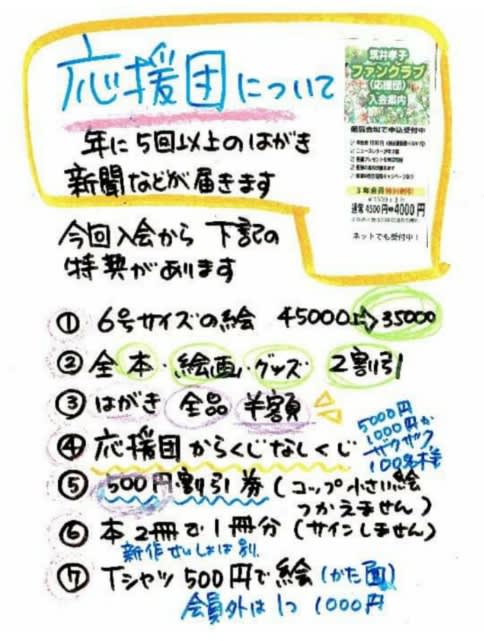 応援団について
年に5回以上のはがき
新聞などが届きます
筑井孝子
ファンクラブ
(応援団)
入会案内
個展会場で申込受付中
3年会員特別割引
通常4500円➡4000円
ネットでも受付中！
今回入会から 下記の
特典があります
① 6号サイズの絵 45000⇨35000
② 全本・絵画・グッズ 2割引
③ はがき 全品 半額
④ 応援団からくじなしくじ
5000円
1000円が
ザクザク
100名様
⑤ 500円割引券(コップ小さい絵
つかえません)
⑥ 本2冊で1冊分(サインしません)
新作せいしょは別
⑦ Tシャツ500円で絵(かた面)
会員外は1つ 1000円